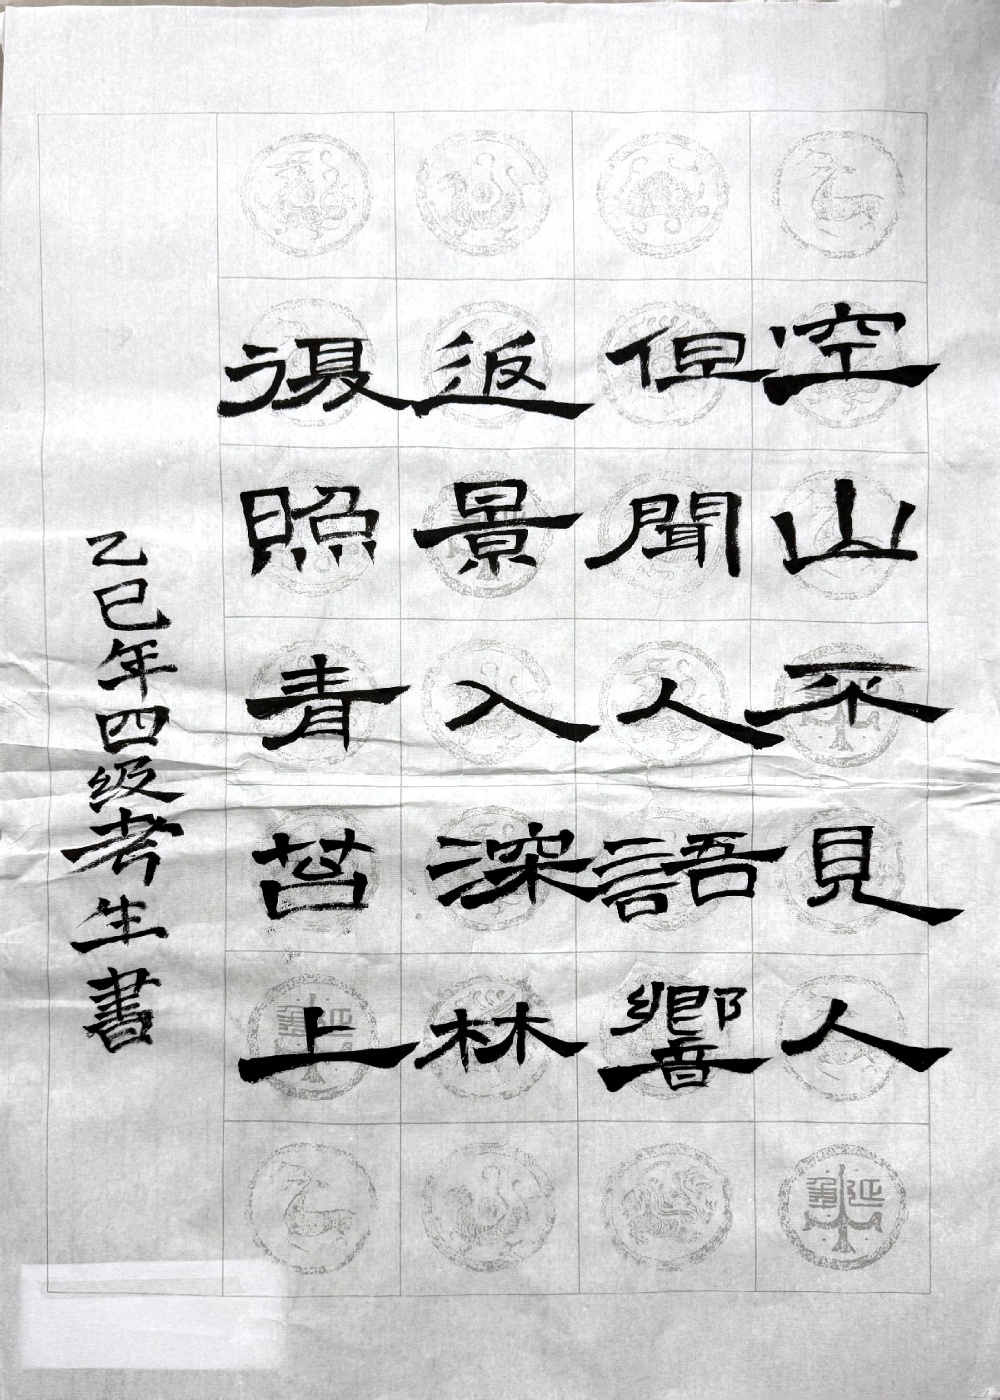 空山不見人
但聞人語響
返景入深林
復照青苔上
乙巳年四级考生書